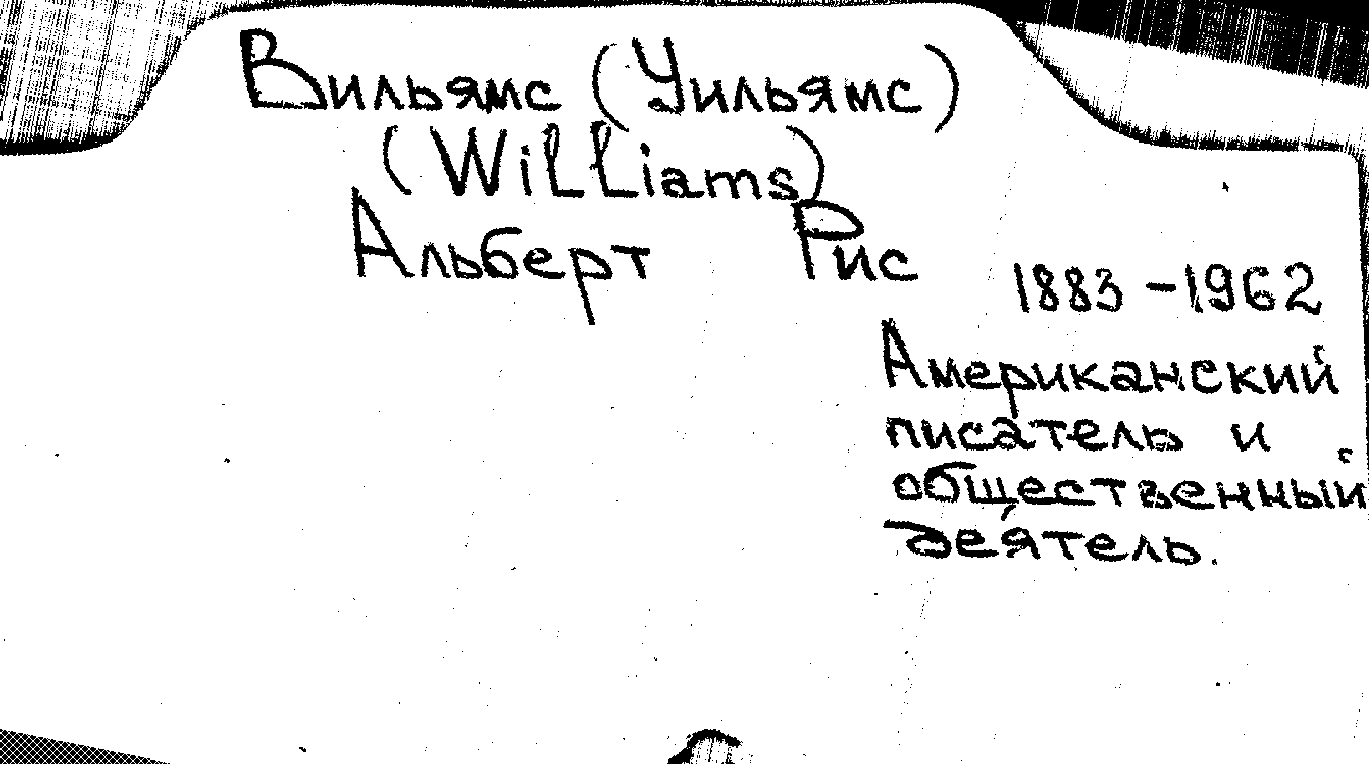 Вильямс (Уильямс)
(Williams)
Альберт Рис
1883-1962
Американский
писатель и
общественный
деятель.